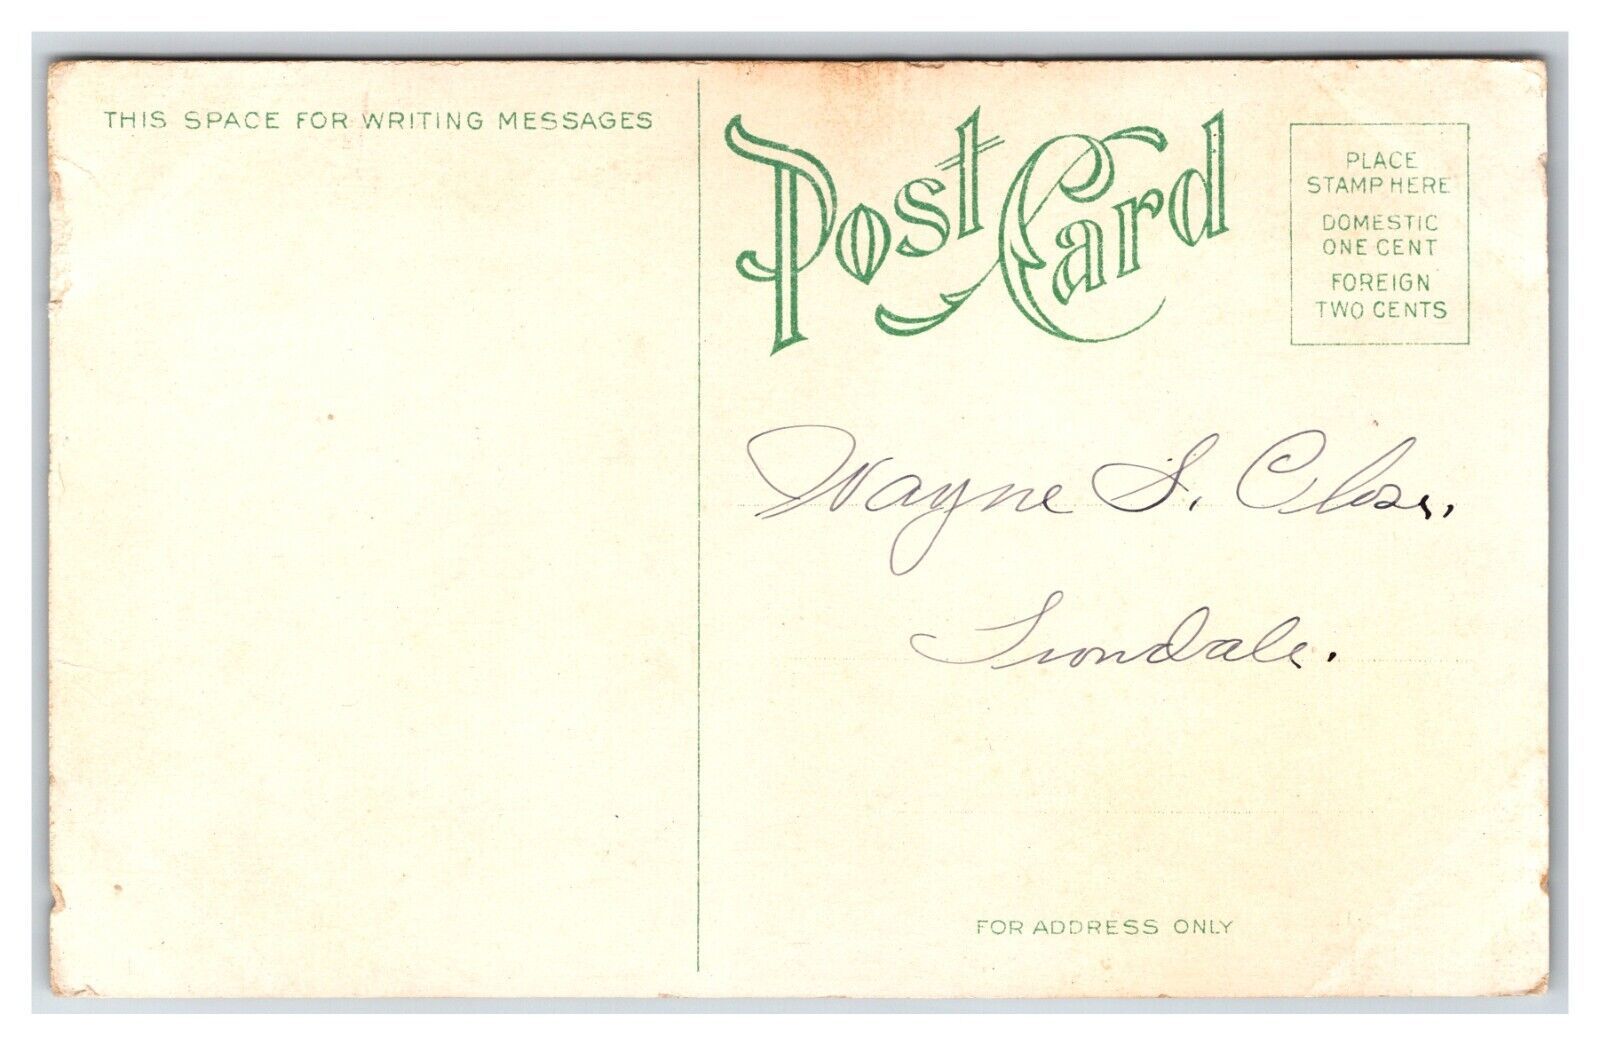 THIS SPACE FOR WRITING MESSAGES
Post Card
PLACE
STAMP HERE
DOMESTIC
ONE CENT
FOREIGN
TWO CENTS
Wayne S. Close,
FOR ADDRESS ONLY